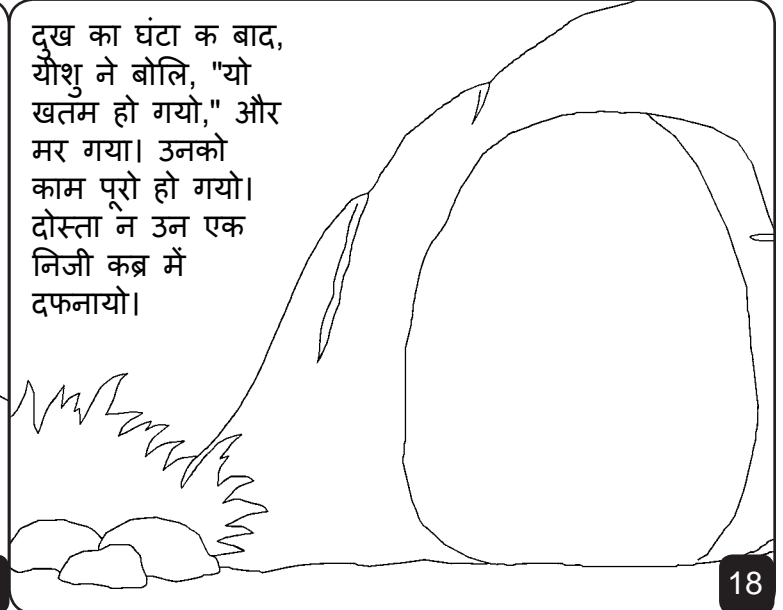 दुख का घंटा क बाद,
यीशु ने बोलि, "यो
खतम हो गयो," और
मर गया। उनको
काम पूरो हो गयो।
दोस्ता न उन एक
निजी कब्र में
दफनायो।
18